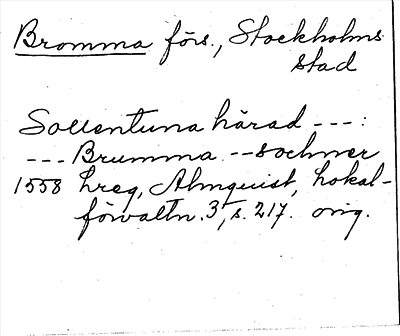 Bromma förs., Stockholms
stad
Sollentuna härad ---:
--- Brumma --sochner
1558 hreg, Almquist, Lokal-
förvaltn. 3, s. 217. orig.